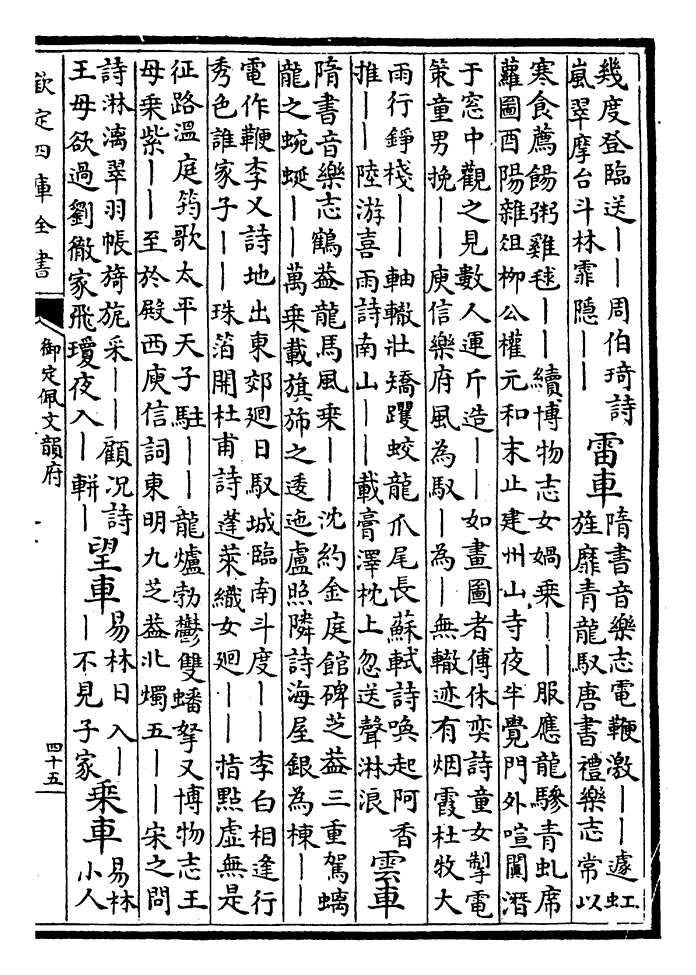 幾度登臨送｜｜周伯琦詩
嵐翠摩台斗林霏隠｜｜
雷車
隋書音樂志電鞭激｜｜遽虹
旌靡青龍馭唐書禮樂志常以
寒食薦餳粥雞毬｜｜續博物志女媧乘｜｜服應龍驂青虬席
蘿圖酉陽雜俎柳公權元和末止建州山寺夜半覺門外喧鬨潛
于窓中觀之見數人運斤造｜｜如畫圖者傅休奕詩童女掣電
策童男挽｜｜庾信樂府風為馭｜為｜無轍迹有烟霞杜牧大
雨行錚棧｜｜軸轍壯矯躩蛟龍爪尾長蘇軾詩喚起阿香
推｜｜陸游喜雨詩南山｜｜載膏澤枕上忽送聲淋浪
雲車
隋書音樂志鶴葢龍馬風乗｜｜沈約金庭館碑芝葢三重駕螭
龍之蜿蜒｜｜萬乗載旗斾之逶迤盧照隣詩海屋銀為棟｜｜
電作鞭李乂詩地出東郊廻日馭城臨南斗度｜｜李白相逢行
秀色誰家子｜｜珠箔開杜甫詩蓬萊織女廻｜｜指點虚無是
征路溫庭筠歌太平天子駐｜｜龍爐勃鬱雙蟠拏又博物志王
母乗紫｜｜至於殿西庾信詞東明九芝葢北燭五｜｜宋之問
詩淋漓翠羽帳旖旎采｜｜顧况詩
王母欲過劉徹家飛瓊夜入｜軿｜
望車
易林日入｜
｜不見子家
乗車
易林
小人
欽定四庫全書
御定佩文韻府
四十五